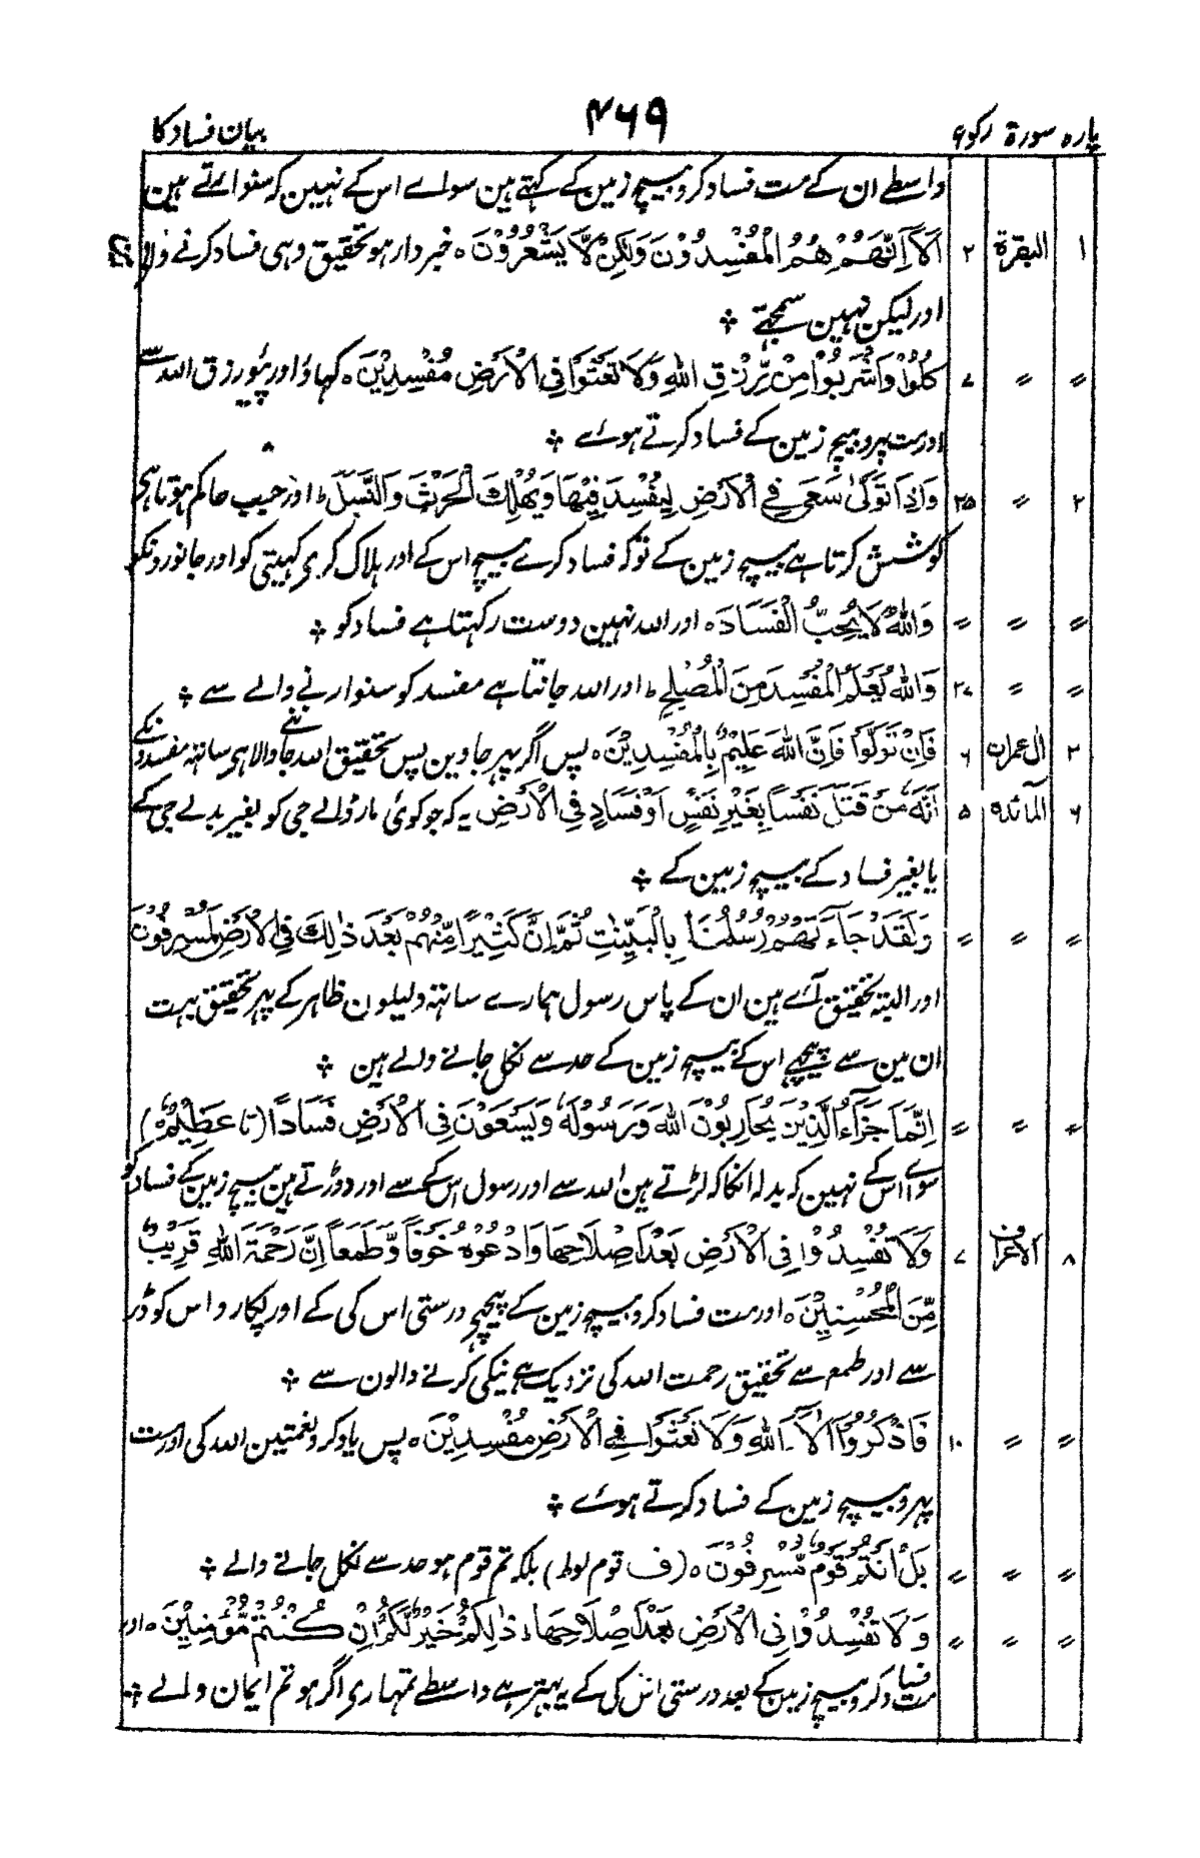 پارہ سورۃ رکوع ۴۶۹ بیان فساد کا
واسطے ان کے مت فساد کرو بیچ زمین کے کہتے ہین سواے اس کے نہین کہ سنوارتے ہین
۱ البقرۃ ۲ اَلَآ اِنَّهُمْ هُمُ الْمُفْسِدُوْنَ وَلٰكِنْ لَّا يَشْعُرُوْنَ ہ خبردار ہو تحقیق وہی فساد کرنے والے
اور لیکن نہین سمجہتے ÷
〃 〃 ۷ كُلُوْا وَاشْرَبُوْا مِنْ رِّزْقِ اللهِ وَلَا تَعْثَوْا فِى الْاَرْضِ مُفْسِدِيْنَ ہ کہاؤ اور پیو رزق اللہ سے
اور مت پہرو بیچ زمین کے فساد کرتے ہوئے ÷
۲ 〃 ۲۵ وَاِذَا تَوَلّٰى سَعٰى فِى الْاَرْضِ لِيُفْسِدَ فِيْهَا وَيُهْلِكَ الْحَرْثَ وَالنَّسْلَ ط اور جب حاکم ہوتا ہی
کوشش کرتا ہے بیچ زمین کے تو کہ فساد کرے بیچ اس کے اور ہلاک کری کہیتی کو اور جانورونکو
〃 〃 〃 وَاللهُ لَا يُحِبُّ الْفَسَادَ ہ اور اللہ نہین دوست رکہتا ہے فساد کو ÷
〃 〃 ۲۷ وَاللهُ يَعْلَمُ الْمُفْسِدَ مِنَ الْمُصْلِحِ ط اور اللہ جانتا ہے مفسد کو سنوارنے والے سے ÷
۳ اٰل عمران ۶ فَاِنْ تَوَلَّوْا فَاِنَّ اللهَ عَلِيْمٌ بِالْمُفْسِدِيْنَ ہ پس اگر پہر جاوین پس تحقیق اللہ جاننے والا ہی ساتہ مفسدونکے
۶ المآئدہ ۵ اَنَّهٗ مَنْ قَتَلَ نَفْسًا بِغَيْرِ نَفْسٍ اَوْ فَسَادٍ فِى الْاَرْضِ یہ کہ جو کوئی مار ڈالے جی کو بغیر بدلے جی کے
یا بغیر فساد کے بیچ زمین کے ÷
〃 〃 〃 وَلَقَدْ جَآءَتْهُمْ رُسُلُنَا بِالْبَيِّنٰتِ ثُمَّ اِنَّ كَثِيْرًا مِّنْهُمْ بَعْدَ ذٰلِكَ فِى الْاَرْضِ لَمُسْرِفُوْنَ
اور البتہ تحقیق آئے ہین ان کے پاس رسول ہمارے ساتہ دلیلون ظاہر کے پہر تحقیق بہت
ان مین سے پیچہے اس کے بیچ زمین کے حد سے نکل جانے والے ہین ÷
〃 〃 〃 اِنَّمَا جَزَآءُ الَّذِيْنَ يُحَارِبُوْنَ اللهَ وَرَسُوْلَهٗ وَيَسْعَوْنَ فِى الْاَرْضِ فَسَادًا (تا عَظِيْمٌ ہ)
سواے اس کے نہین کہ بدلہ انکا کہ لڑتے ہین اللہ سے اور رسول اس کے سے اور دوڑتے ہین بیچ زمین کے فساد کو
۸ الاعراف ۷ وَلَا تُفْسِدُوْا فِى الْاَرْضِ بَعْدَ اِصْلَاحِهَا وَادْعُوْهُ خَوْفًا وَّطَمَعًا اِنَّ رَحْمَةَ اللهِ قَرِيْبٌ
مِّنَ الْمُحْسِنِيْنَ ہ اور مت فساد کرو بیچ زمین کے پیچہے درستی اس کی کے اور پکارو اس کو ڈر
سے اور طمع سے تحقیق رحمت اللہ کی نزدیک ہے نیکی کرنے والون سے ÷
〃 〃 ۱۰ فَاذْكُرُوْٓا اٰلَآءَ اللهِ وَلَا تَعْثَوْا فِى الْاَرْضِ مُفْسِدِيْنَ ہ پس یاد کرو نعمتین اللہ کی اور مت
پہرو بیچ زمین کے فساد کرتے ہوئے ÷
〃 〃 〃 بَلْ اَنْتُمْ قَوْمٌ مُّسْرِفُوْنَ ہ (ف قوم لوط) بلکہ تم قوم ہو حد سے نکل جانے والے ÷
〃 〃 〃 وَلَا تُفْسِدُوْا فِى الْاَرْضِ بَعْدَ اِصْلَاحِهَا ط ذٰلِكُمْ خَيْرٌ لَّكُمْ اِنْ كُنْتُمْ مُّؤْمِنِيْنَ ہ اور
مت فساد کرو بیچ زمین کے بعد درستی اس کی کے یہ بہتر ہے واسطے تمہاری اگر ہو تم ایمان والے ÷